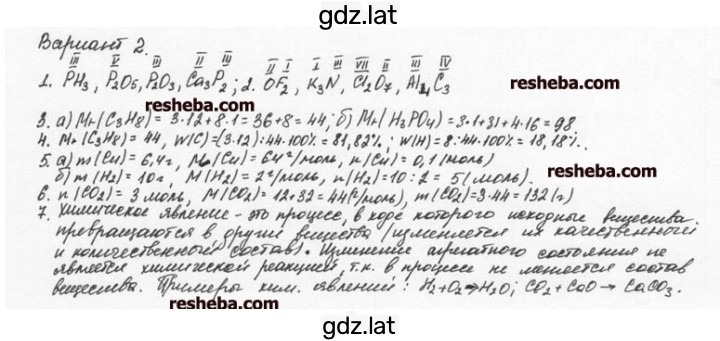 gdz.lat
Вариант 2.
III V III II III II I I III VII II III IV
1. PH3, P2O5, P2O3, Ca3P2; 2. OF2, K3N, Cl2O7, Al4C3
resheba.com resheba.com
3. а) Mr(C3H8) = 3·12+8·1=36+8=44; б) Mr(H3PO4)=3·1+31+4·16=98
4. Mr(C3H8) = 44, W(C)=(3·12):44·100%=81,82%; W(H)=8:44·100%=18,18%.
5. а) m(Cu)=6,4г, M(Cu)=64г/моль, n(Cu)=0,1(моль)
б) m(H2)=10г, M(H2)=2г/моль, n(H2)=10:2=5(моль).
6. n(CO2)=3моль, M(CO2)=12+32=44(г/моль), m(CO2)=3·44=132(г)
resheba.com resheba.com
7. Химическое явление - это процесс, в ходе которого исходные вещества
превращаются в другие вещества (изменяется их качественный
и количественный состав). Изменение агрегатного состояния не
является химической реакцией, т.к. в процессе не меняется состав
вещества. Примеры хим. явлений: H2+O2→H2O; CO2+CaO→CaCO3.
resheba.com resheba.com
gdz.lat